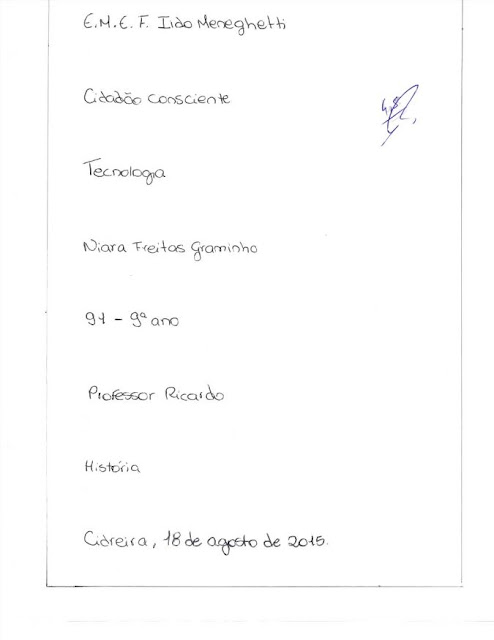 E.M.E.F. Ildo Meneghetti
Cidadão Consciente
Tecnologia
Niara Freitas Graminho
91 - 9º ano
Professor Ricardo
História
Cidreira, 18 de agosto de 2015.